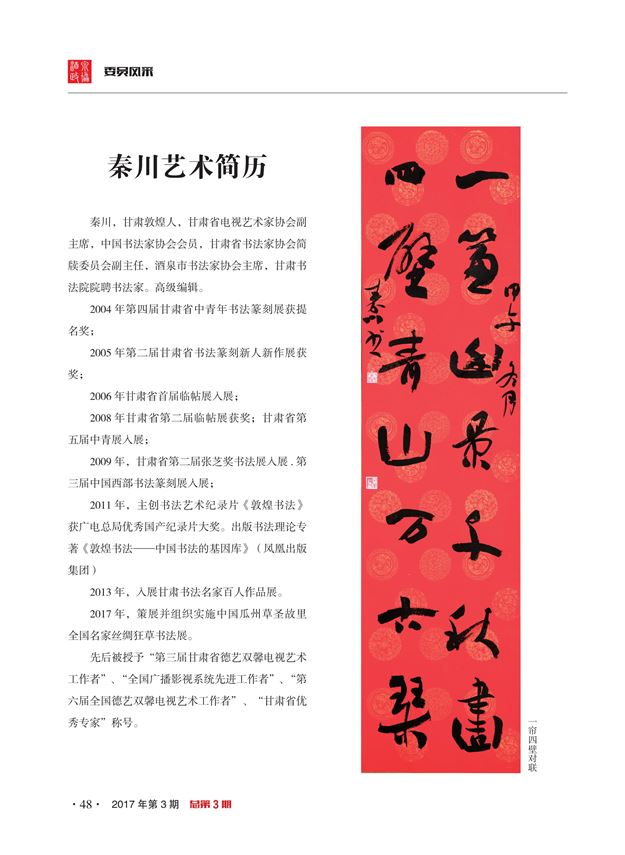 酒泉政协
委员风采
秦川艺术简历
秦川，甘肃敦煌人，甘肃省电视艺术家协会副
主席，中国书法家协会会员，甘肃省书法家协会简
牍委员会副主任，酒泉市书法家协会主席，甘肃书
法院院聘书法家。高级编辑。
2004 年第四届甘肃省中青年书法篆刻展获提
名奖；
2005 年第二届甘肃省书法篆刻新人新作展获
奖；
2006 年甘肃省首届临帖展入展；
2008 年甘肃省第二届临帖展获奖；甘肃省第
五届中青展入展；
2009 年，甘肃省第二届张芝奖书法展入展 . 第
三届中国西部书法篆刻展入展；
2011 年，主创书法艺术纪录片《敦煌书法》
获广电总局优秀国产纪录片大奖。出版书法理论专
著《敦煌书法——中国书法的基因库》（凤凰出版
集团）
2013 年，入展甘肃书法名家百人作品展。
2017 年，策展并组织实施中国瓜州草圣故里
全国名家丝绸狂草书法展。
先后被授予“第三届甘肃省德艺双馨电视艺术
工作者”、“全国广播影视系统先进工作者”、“第
六届全国德艺双馨电视艺术工作者”、“甘肃省优
秀专家”称号。
一帘幽景千秋畫
甲午冬月
四壁青山万古琴
秦川书
一帘四壁对联
·48· 2017 年第 3 期 总第 3 期